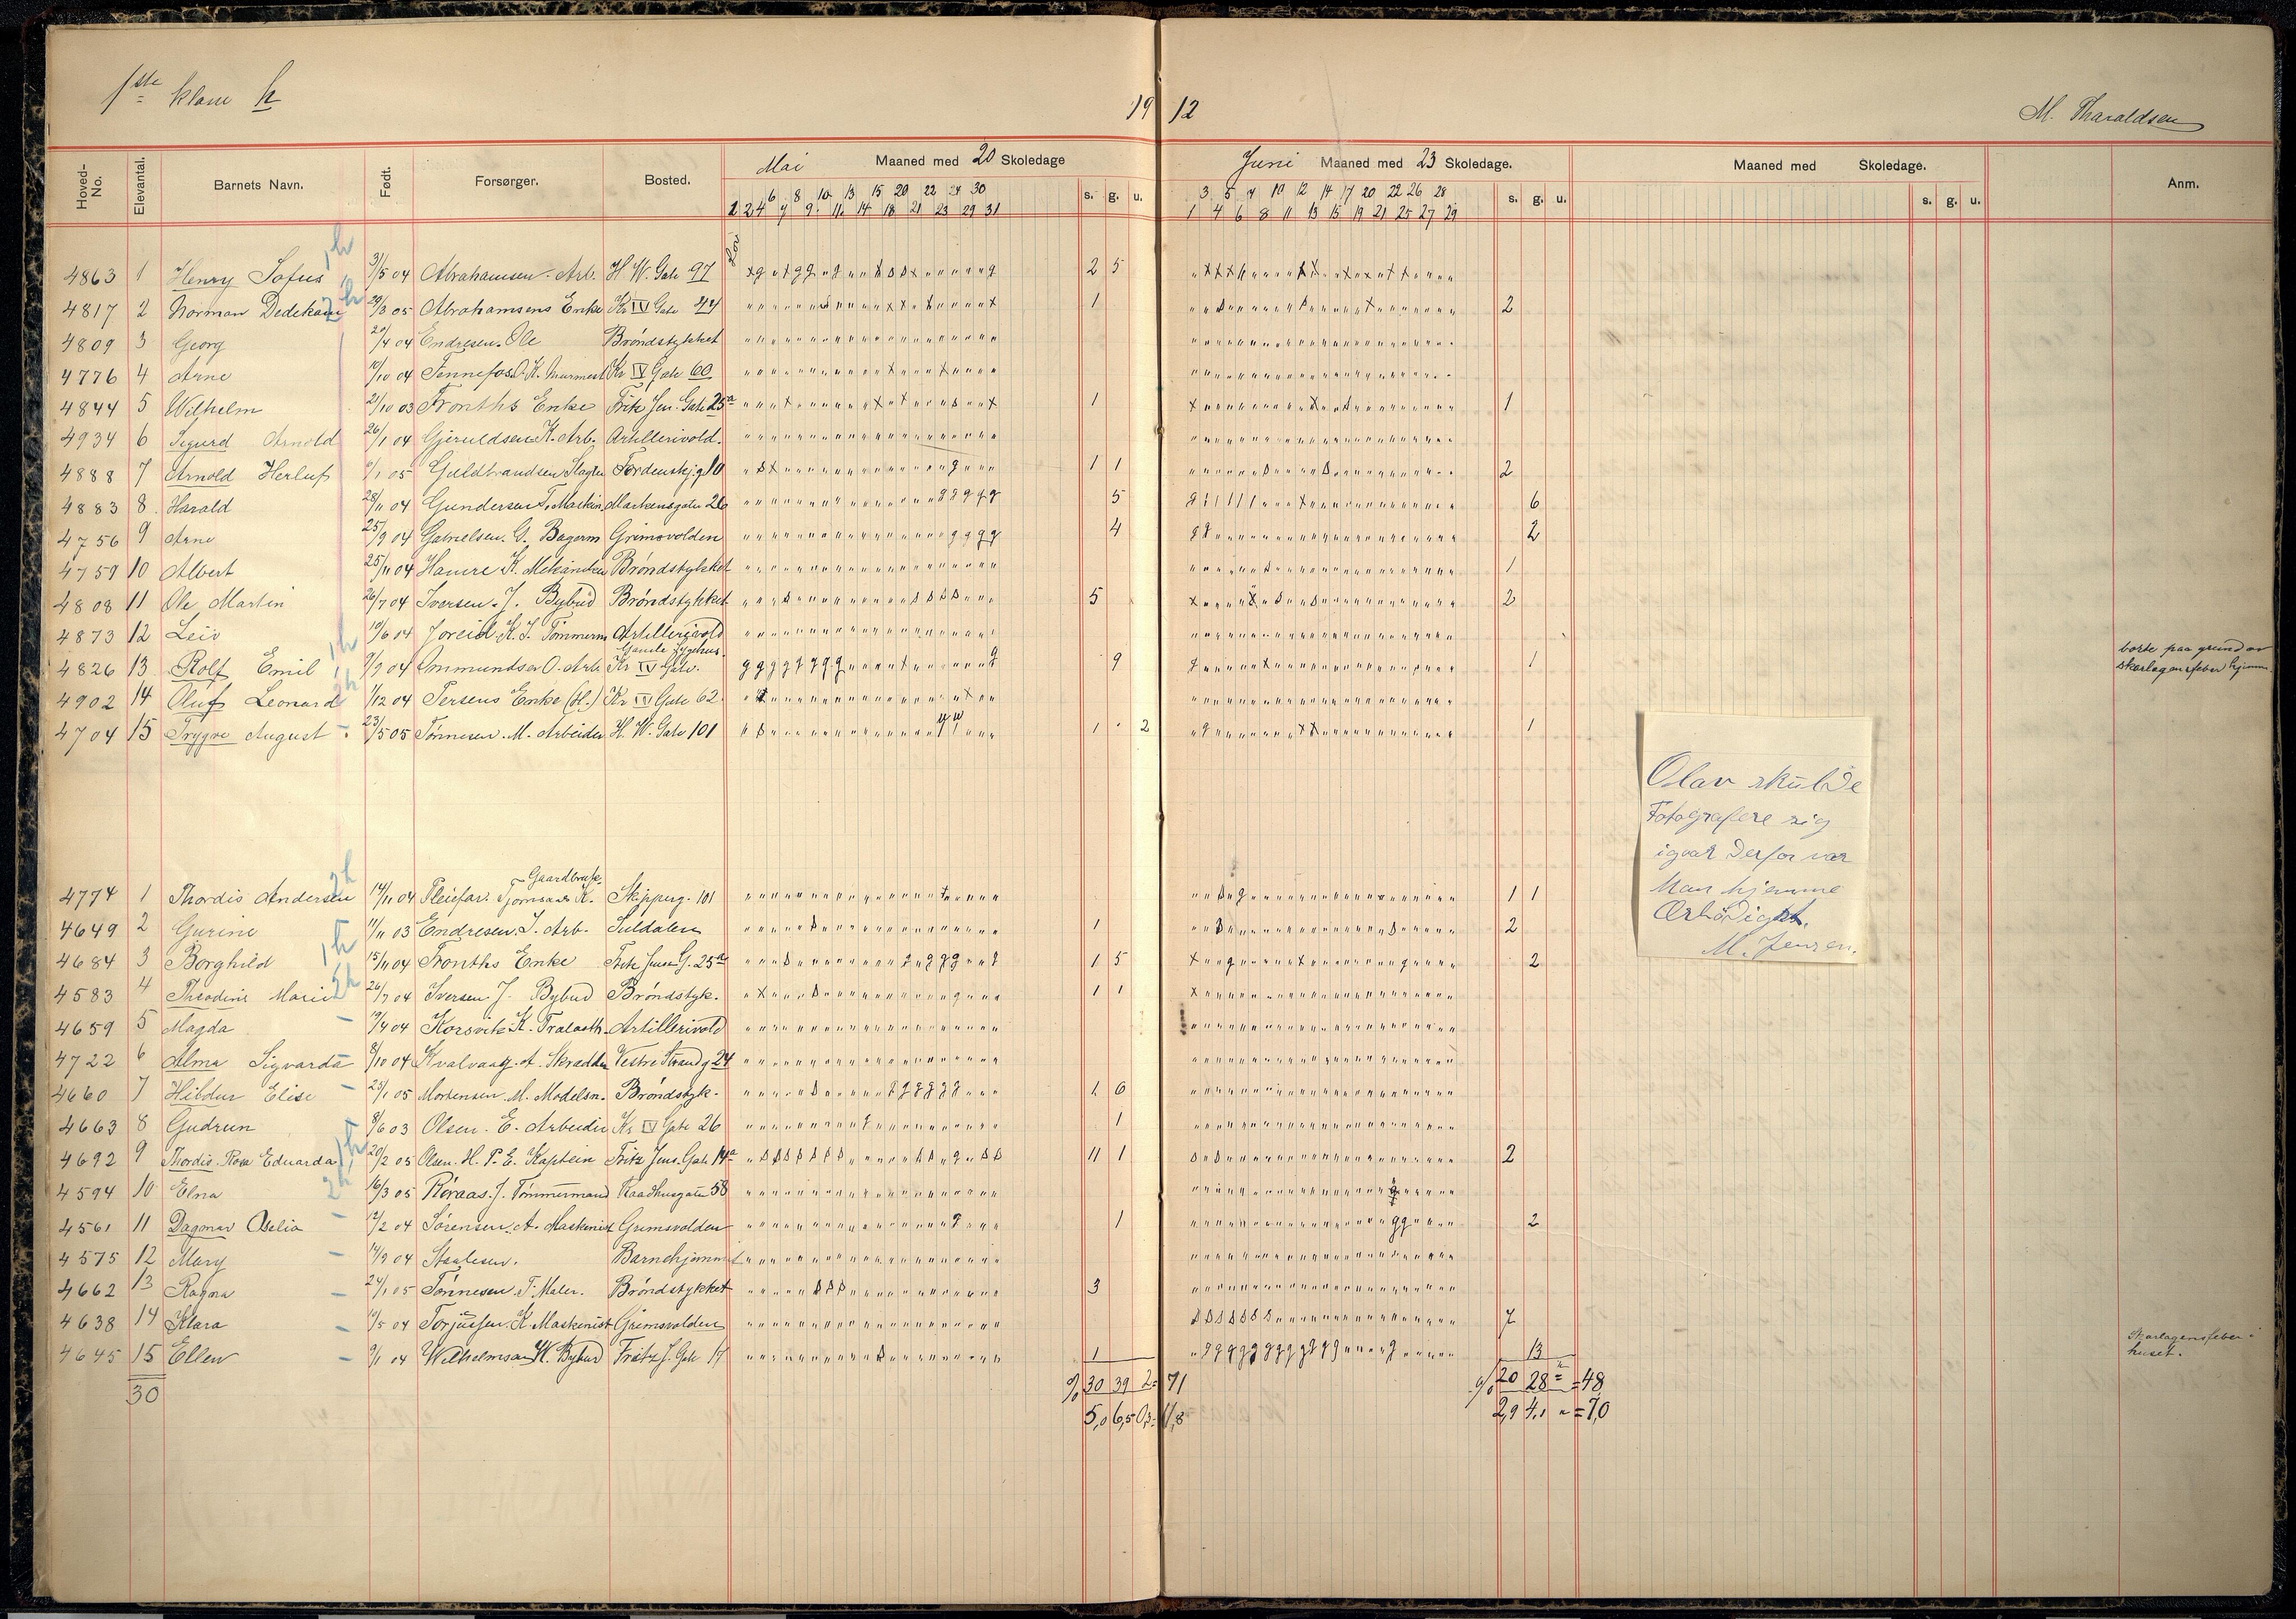 1ste klasse h
1912
M. Tharaldsen
Hoved-No. Elevantal. Barnets Navn. Født. Forsørger. Bosted. Mai Maaned med 20 Skoledage s. g. u. Juni Maaned med 23 Skoledage. s. g. u. Maaned med Skoledage. s. g. u. Anm.
6 8 10 13 15 20 22 24 30 3 5 7 10 12 14 17 20 22 26 28
1 2 4 7 9 11 14 18 21 23 29 31 1 4 6 8 11 13 15 19 21 25 27 29
4863 1 Henry Sofus 3/5 04 Abrahamsen. Arb. H. W. Gate 97 2 5
4817 2 Norman Dedekam 29/3 05 Abrahamsens Enke Kr IV Gate 44 1 2
4809 3 Georg 20/4 04 Endresen. Ole Brøndstykket
4776 4 Arne 10/10 04 Fennefos. O. K. Murmest. Kr IV Gate 60
4844 5 Wilhelm 21/10 03 Fronths Enke Fritz Jen. Gate 25a 1 1
4934 6 Sigurd Arnold 26/1 04 Gjeruldsen K. Arb. Artillerivold.
4888 7 Arnold Herluf /1 05 Guldbrandsen Slagter Tordenskj. g 10 1 1 2
4883 8 Harald 28/11 04 Gundersen T. Maskin. Markensgaten 26 5 6
4756 9 Arne 25/9 04 Gabrielsen. G. Bagerm Grimsvolden 4 2
4759 10 Albert 25/11 04 Hamre K. Mekaniker Brøndstykket 1
4808 11 Ole Martin 26/7 04 Iversen. J. Bybud Brøndstykket 5 2
4873 12 Leiv 10/6 04 Joreid K. J. Tømmerm Artillerivold
Gamle Sygehus.
4826 13 Rolf Emil 9/9 04 Ommundsen O. Arb. Kr IV Gate. 9 1
borte paa grund av
skarlagensfeber hjemme.
4902 14 Oluf Leonard 1/12 04 Tersens Enke (H.) Kr IV Gate 62.
4704 15 Trygve August 23/5 05 Tønnesen. M. Arbeider H. W. Gate 101 1 2 1
Olav skulde
Fotografere sig
igaar Derfor var
Han hjemme
Ærbødigst.
M. Jensen.
Gaardbruk.
4774 1 Thordis Andersen 14/11 04 Pleiefar. Tjomsaas K. Skipperg. 101 1 1
4649 2 Gurine 11/11 03 Endresen. J. Arb. Suldalen 1 2
4684 3 Borghild 15/11 04 Fronths Enke Fritz Jens. G. 25a 1 5 2
4583 4 Theodine Marie 26/7 04 Iversen J. Bybud Brøndstyk. 1 1
4659 5 Magda 19/4 04 Korsvik K. Artillerivold
4722 6 Alma Sigvarda 8/10 04 Kvalvaag. A. Skrædder Vestre Strandg 24
4660 7 Hildur Elise 25/1 05 Mortensen M. Modelsn. Brøndstyk. 1 6
4663 8 Gudrun 8/6 03 Olsen. E. Arbeider Kr IV Gate 26 1
4692 9 Thordis Rosa Eduarda 20/2 05 Olsen. H. P. E. Kaptein Fritz Jens. Gate 14a 11 1 2
4594 10 Elna 16/3 05 Røraas. J. Tømmermand Raadhusgaten 58
4561 11 Dagmar Oselia 12/2 04 Sørensen. A. Maskinist Grimsvolden 1 2
4575 12 Mary 14/9 04 Staalesen. Barnehjemmet
4662 13 Ragna 24/1 05 Tønnesen. T. Maler. Brøndstykket 3
4638 14 Klara 10/5 04 Torjussen. K. Maskinist Grimsvolden 7
4645 15 Ellen 9/1 04 Wilhelmsen W. Bybud Fritz J. Gate 17 1 13
Skarlagensfeber i
huset.
30
% 30 39 2 = 71 % 20 28 " = 48
5,0 6,5 0,3 = 11,8 2,9 4,1 " = 7,0